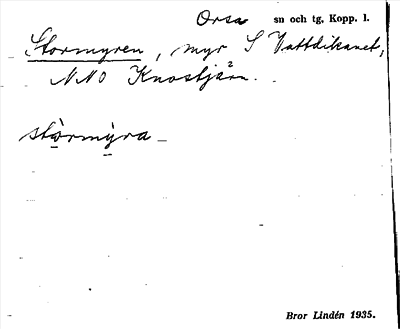 Orsa sn och tg, Kopp. l.
Stormyren, myr S Vattdikanet,
NNO Knostjärn.
stòrmýra
Bror Lindén 1935.